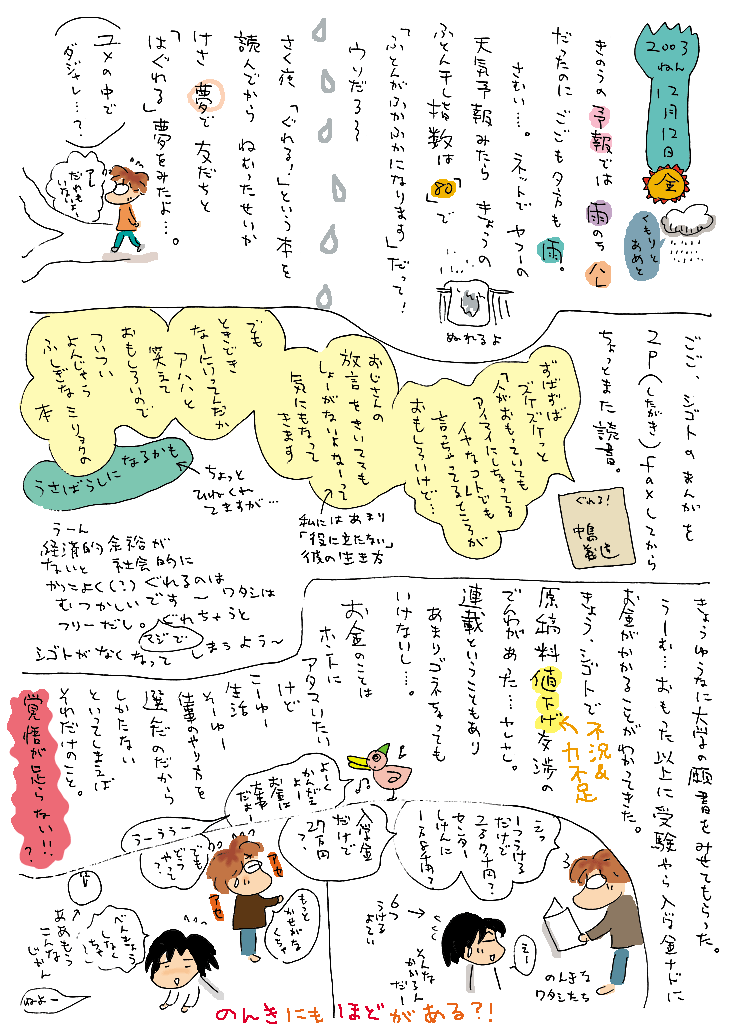 2003
ねん
12月12日
金
くもりと
あめと
きのうの予報では 雨のち ハレ
だったのに ごごも夕方も 雨。
さむい…。 ネットで ヤフーの
天気予報みたら きょうの
ふとん干し指数は「80」で
「ふとんがふかふかになります」だって!
ウソだろ〜
ぬれるよ
さく夜 「ぐれる!」という本を
読んでから ねむったせいか
けさ 夢で 友だちと
「はぐれる」夢をみたよ…。
ユメの中で
ダジャレ…?
アレー
だれも
いないよー
ごご、シゴトのまんがを
2P(したがき)faxしてから
ちょっとまた読書。
ぐれる!
中島
義道
ずばずば
ズケズケっと
「人がおもっていても
アイマイにしちゃってる
イヤなコトでも」
言っちゃってるところが
おもしろいけど…
おじさんの
放言をきいてても
しょーがないよなーって
気にもなって
きます
私にはあまり
「役に立たない」
彼の生き方
でも
ときどき
なーにいってんだか
アハハと
笑えて
おもしろいので
ついつい
よんじゃう
ふしぎなミリョクの
本
うさばらしに なるかも
ちょっと
ひねくれ
てきますが…
うーん
経済的余裕が
ないと 社会的に
かっこよく(?)ぐれるのは
むつかしいです〜 ワタシは
フリーだし。 ぐれちゃうと
マジで
シゴトがなくなって しまうよう〜
きょうゆうなに大学の願書をみせてもらった。
うーむ… おもった以上に受験やら入学金ナドに
お金がかかることがわかってきた。
きょう、シゴトで
原稿料 値下げ交渉の
でんわがあった… ヤレヤレ。
不況&
力不足
連載ということもあり
あまりゴネちゃっても
いけないし…。
お金のことは
ホントに
アタマいたい
けど
こーゆー
生活
そーゆー
仕事のやり方を
選んだのだから
しかたない
といってしまえば
それだけのこと。
覚悟が足らない!!?
えっ
一つうける
だけで
センター
しけんに
入学金
だけで
27万円
?
よーく
かんがえよー
お金は
大事
だよー
うーううー
でも
どう
やって?
アセ
アセ
もっと
かせがな
くちゃ
6つ
うける
よてい
そんな
かかるん
だー
えー
のんきな
ワタシたち
べんきょう
しなく
ちゃー
あめもう
こんな
じかん
ねよー
のんきにも ほどがある?!